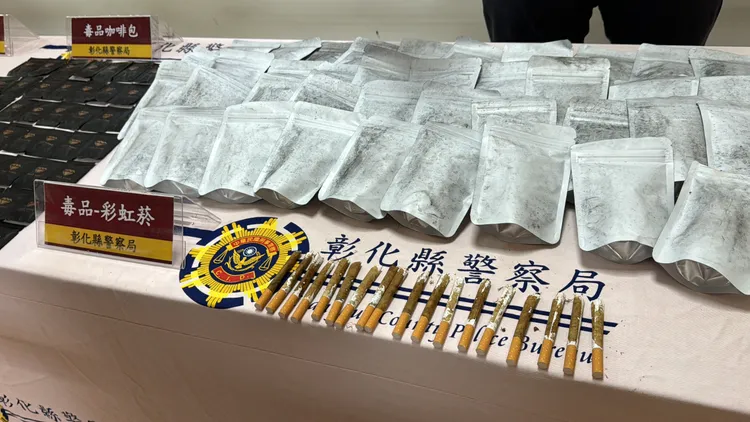 毒品咖啡包
彰化縣警察局
毒品-彩虹菸
彰化縣警察局
C.I.D.
彰化縣警察局
County Police Bureau
彰化縣警